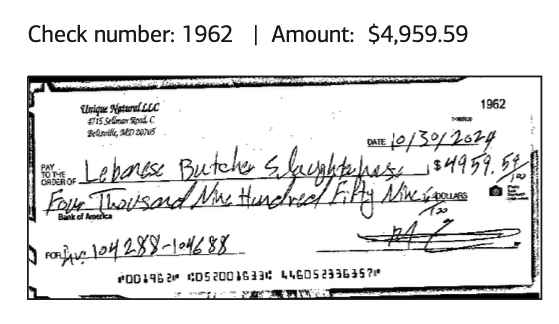 Check number: 1962 | Amount: $4,959.59
Unique Natural LLC
4715 Sellman Road, C
Beltsville, MD 20705
1962
DATE 10/30/2024
PAY TO THE ORDER OF Lebanese Butcher Slaughterhouse $4959.59/100
Four Thousand Nine Hundred Fifty Nine DOLLARS
Bank of America
FOR Inv: 104288-104688
⑈001962⑈ ⑆052001633⑆ 446052336357⑈